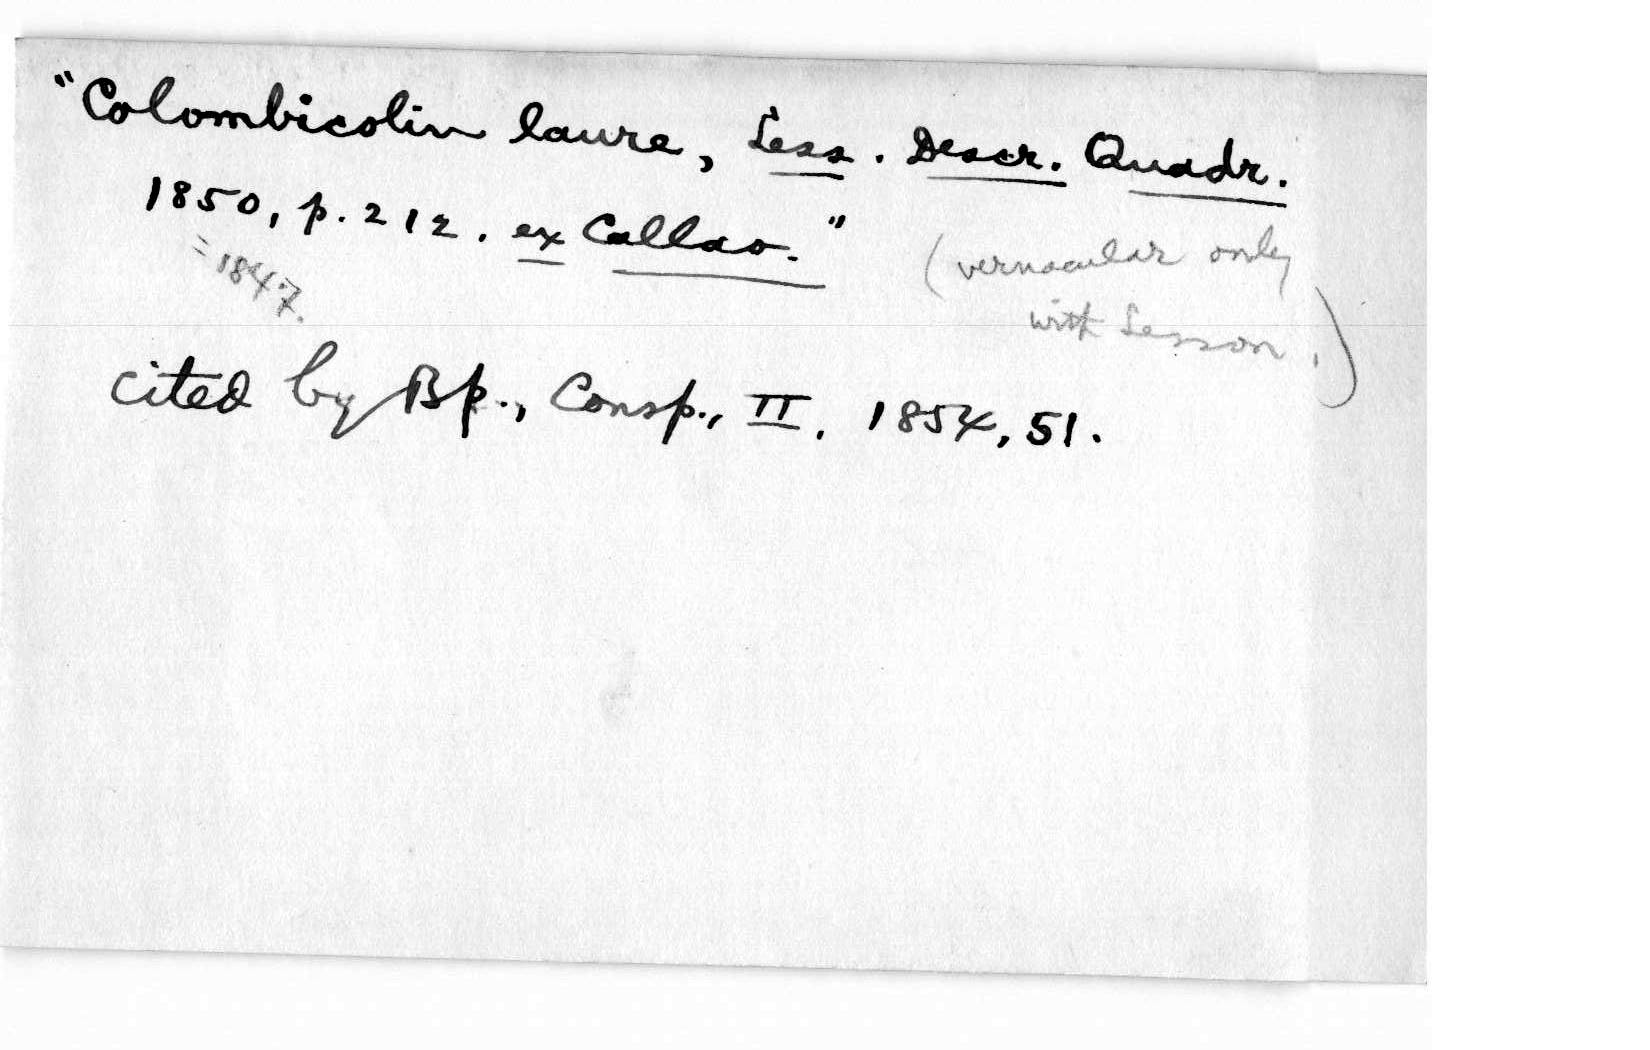 "Colombicolin laure, Less. Descr. Quadr.
1850, p. 212. ex Callao."
= 1847.
(vernacular only
with Lesson.)
cited by Bp., Consp., II, 1854, 51.